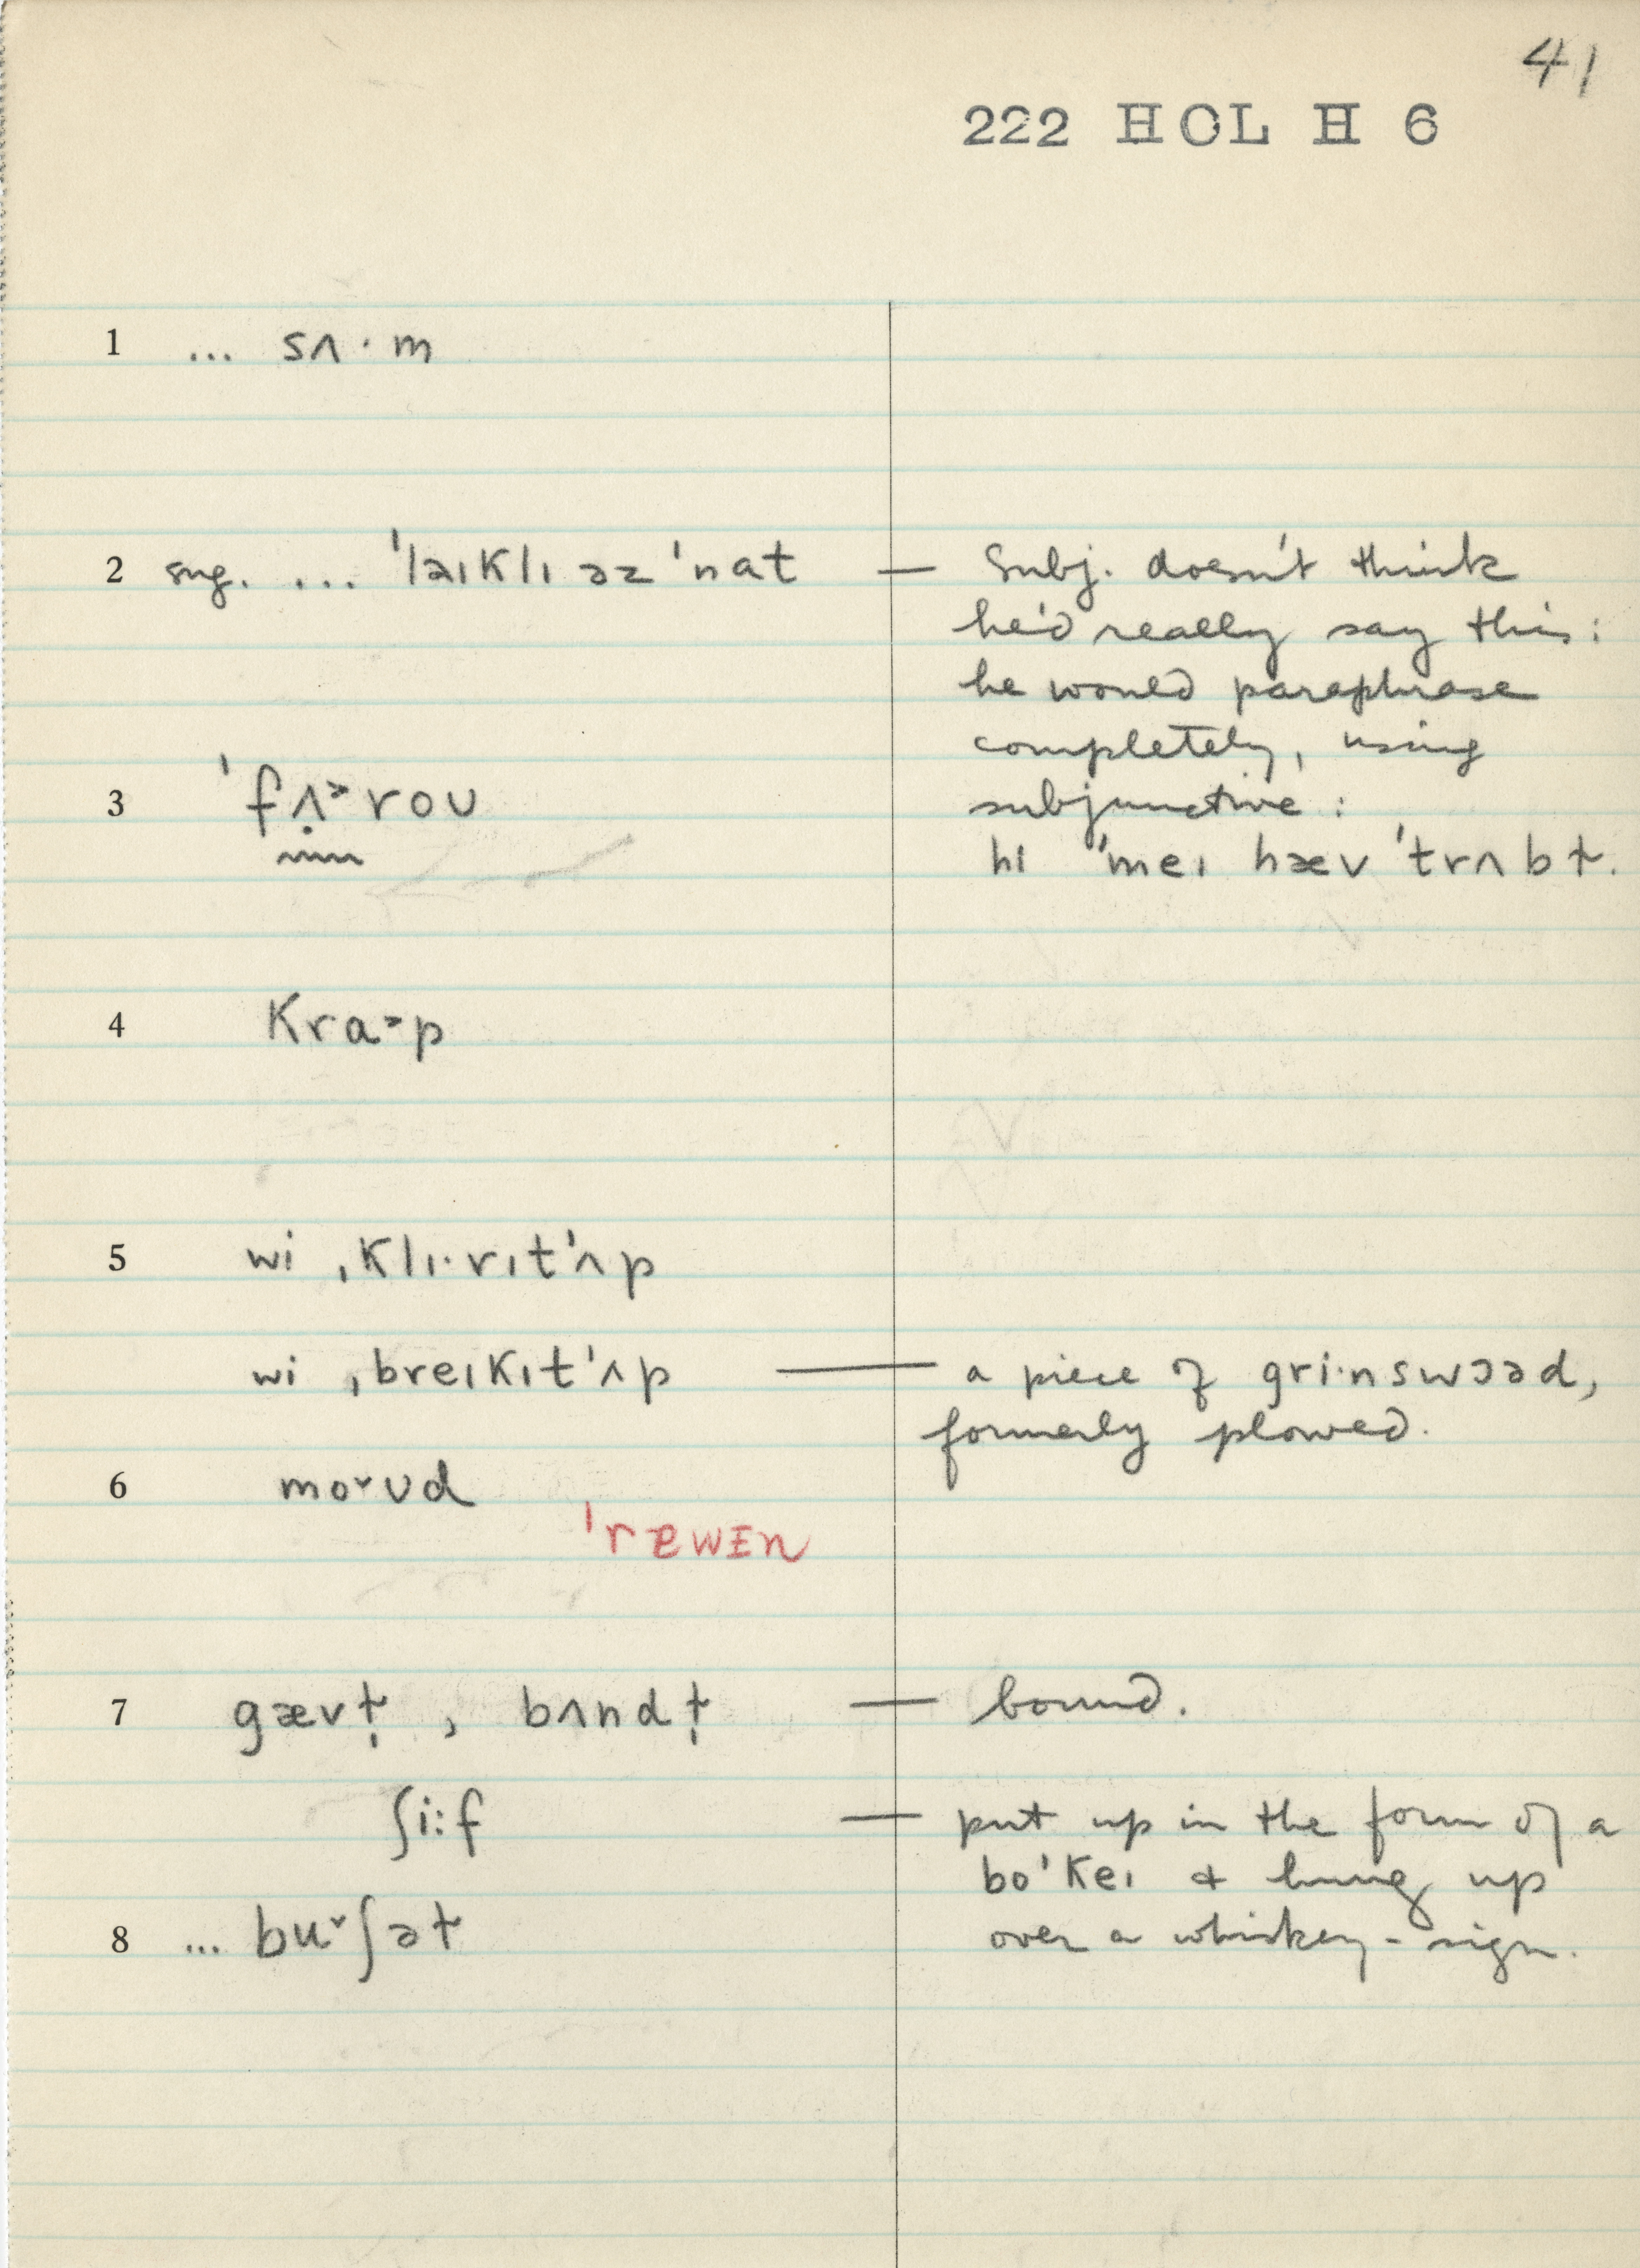 41
222 HOL H 6
1 ... sʌ·m
2 sug. ... ˈlaɪklɪ əz ˈnat — Subj. doesn't think
he'd really say this:
he would paraphrase
completely, using
3 ˈfʌ̣˃roʊ subjunctive:
hi ˈmeɪ hæv ˈtrʌbɫ.
4 kra˃p
5 wi ˌklɪ·rɪtˈʌp
wi ˌbreɪkɪtˈʌp — a piece of gri·nswɔəd,
formerly plowed.
6 mo˅ʊd
ˈrɐwɪn
7 gævɫ̩, bʌndɫ̩ — bound.
ʃi:f — put up in the form of a
boˈkeɪ & hung up
8 ... bu˅ʃəɫ over a whiskey-sign.